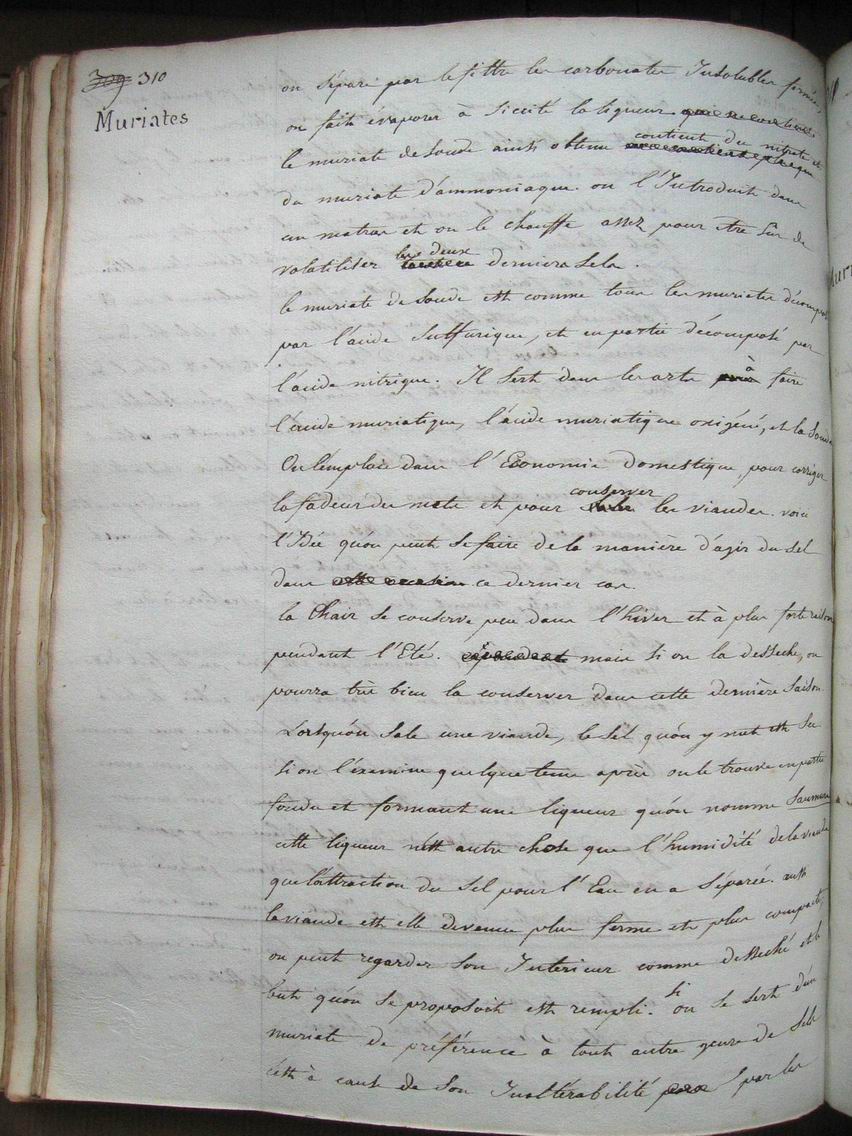 309 310
Muriates
on séparé par le filtre les carbonates Insolubles formés,
on fait évaporer à siccité la liqueur
contient du nitrate et
le muriate de soude ainsi obtenu
du muriate d'ammoniaque. on l'Introduit dans
un matras et on le chauffe assez pour etre sûr de
les deux
volatiliser derniers sels.
le muriate de soude est comme tous les muriates décomposé
par l'acide sulfurique, et en partie décomposé par
à
l'acide nitrique. Il sert dans les arts pour faire
l'acide muriatique, l'acide muriatique oxigéné, et la soude
On l'emploie dans l'Economie domestique, pour corriger
conserver
la fadeur des mets et pour saler les viandes. voici
l'Idée qu'on peut se faire de la manière d'agir du sel
dans cette occasion ce dernier cas.
la Chair se conserve peu dans l'hiver et à plus forte raison
pendant l'Eté. cependant mais si on la desseche, on
pourra très bien la conserver dans cette dernière saison.
Lorsqu'on sale une viande, le sel qu'on y met est sec
si on l'examine quelque tems après on le trouve en partie
fondu et formant une liqueur qu'on nomme Saumure
cette liqueur n'est autre chose que l'humidité de la viande
que l'attraction du sel pour l'Eau en a séparée. aussi
la viande est elle devenue plus ferme et plus compacte,
on peut regarder son Interieur comme desséché et le
but qu'on se proposoit est rempli. si on se sert d'un
muriate de préférence à tout autre genre de sels
c'est à cause de son Inaltérabilité par les